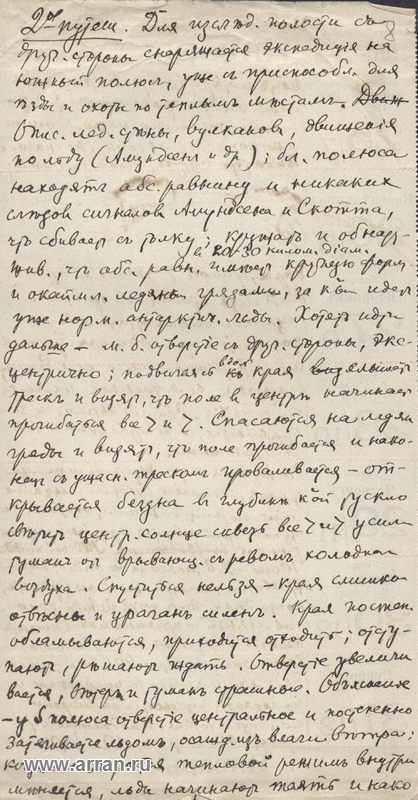 8
2ое путеш. Для изслѣд. полости съ
друг. стороны снаряжается экспедиція на
южный полюсъ, уже съ приспособл. для
ѣзды и охоты по теплымъ мѣстамъ. Движ
Опис. лед. стѣны, вулкановъ, движенія
по льду (Амундсенъ и др); бл. полюса
находятъ абс. равнину и никакихъ
слѣдов сигналов Амундсена и Скотта,
что сбиваетъ съ толку; кружатъ и обнару-
въ 20-30 килом. діам.
жив., что абс. равн. имѣетъ круглую форму
и окаймл. ледяными грядами, за кои идетъ
уже норм. антарктич. льды. Хотятъ идти
дальше – м. б. отверстіе съ друг. стороны, экс-
центрично; подвигаясь вдоль края слышатъ
трескъ и видятъ, что поле въ центрѣ начинает
прогибаться все > и >. Спасаются на ледян
гряды и видятъ, что поле прогибается и нако-
нецъ съ ужасн. трескомъ проваливается – от-
крывается бездна въ глубинѣ кой тускло
свѣтитъ центр. солнце сквозь все > и > усил
туманъ от врывающ. съ ревомъ холоднаго
воздуха. Спуститься нельзя – края слишком
отвѣсны и ураганъ силенъ. Края постеп.
обламываются, приходится отходить; отсту-
паютъ, рѣшаютъ ждать. Отверстіе увеличи
вается, вѣтеръ и туманъ страшные. Объясненіе
– у S полюса отверстіе центральное и постепенно
затягивается льдомъ, осажд. изъ влаги вѣтра;
тепловой режимъ внутри
мѣняется, льды начинаютъ таять и нако
www.arran.ru